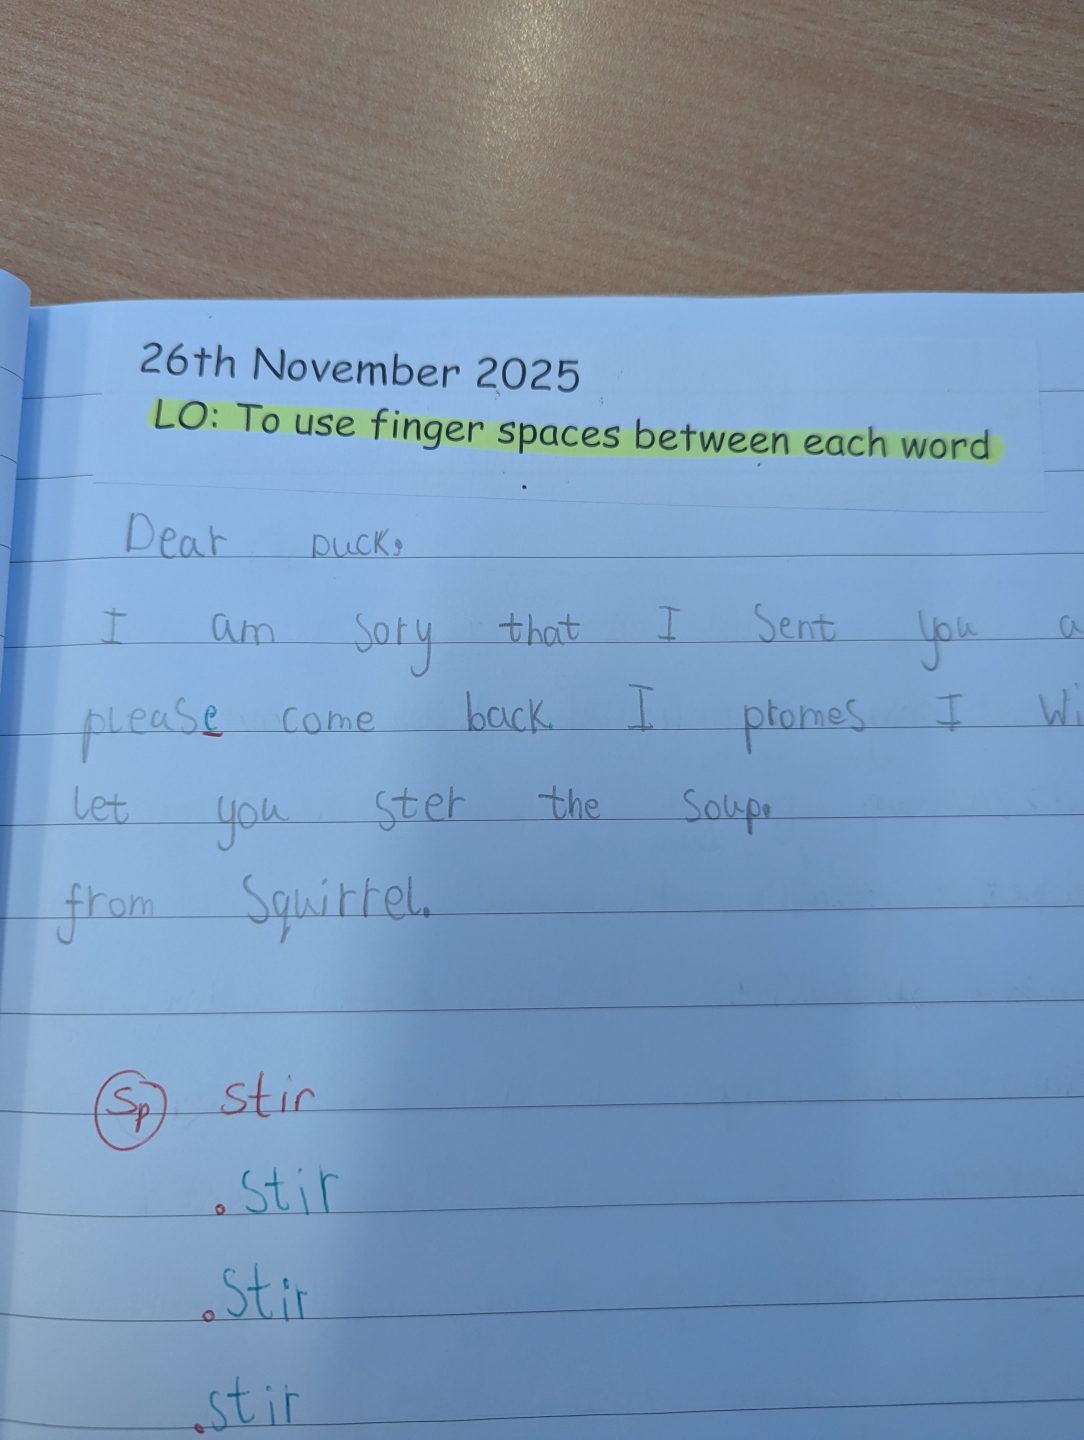 26th November 2025
LO: To use finger spaces between each word
Dear Duck,
I am sory that I sent you
please come back. I promes I
let you ster the soup.
from Squirrel.
Sp stir
.stir
.stir
.stir